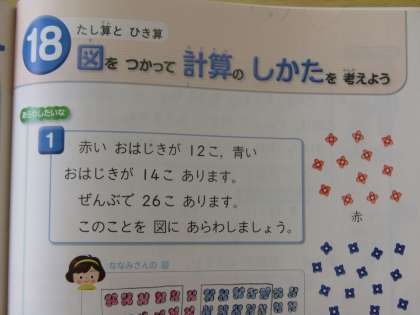 18
たし算と ひき算
図を つかって 計算の しかたを 考えよう
あらわしたいな
1
赤い おはじきが 12こ, 青い
おはじきが 14こ あります。
ぜんぶで 26こ あります。
このことを 図に あらわしましょう。
赤
ななみさんの 図